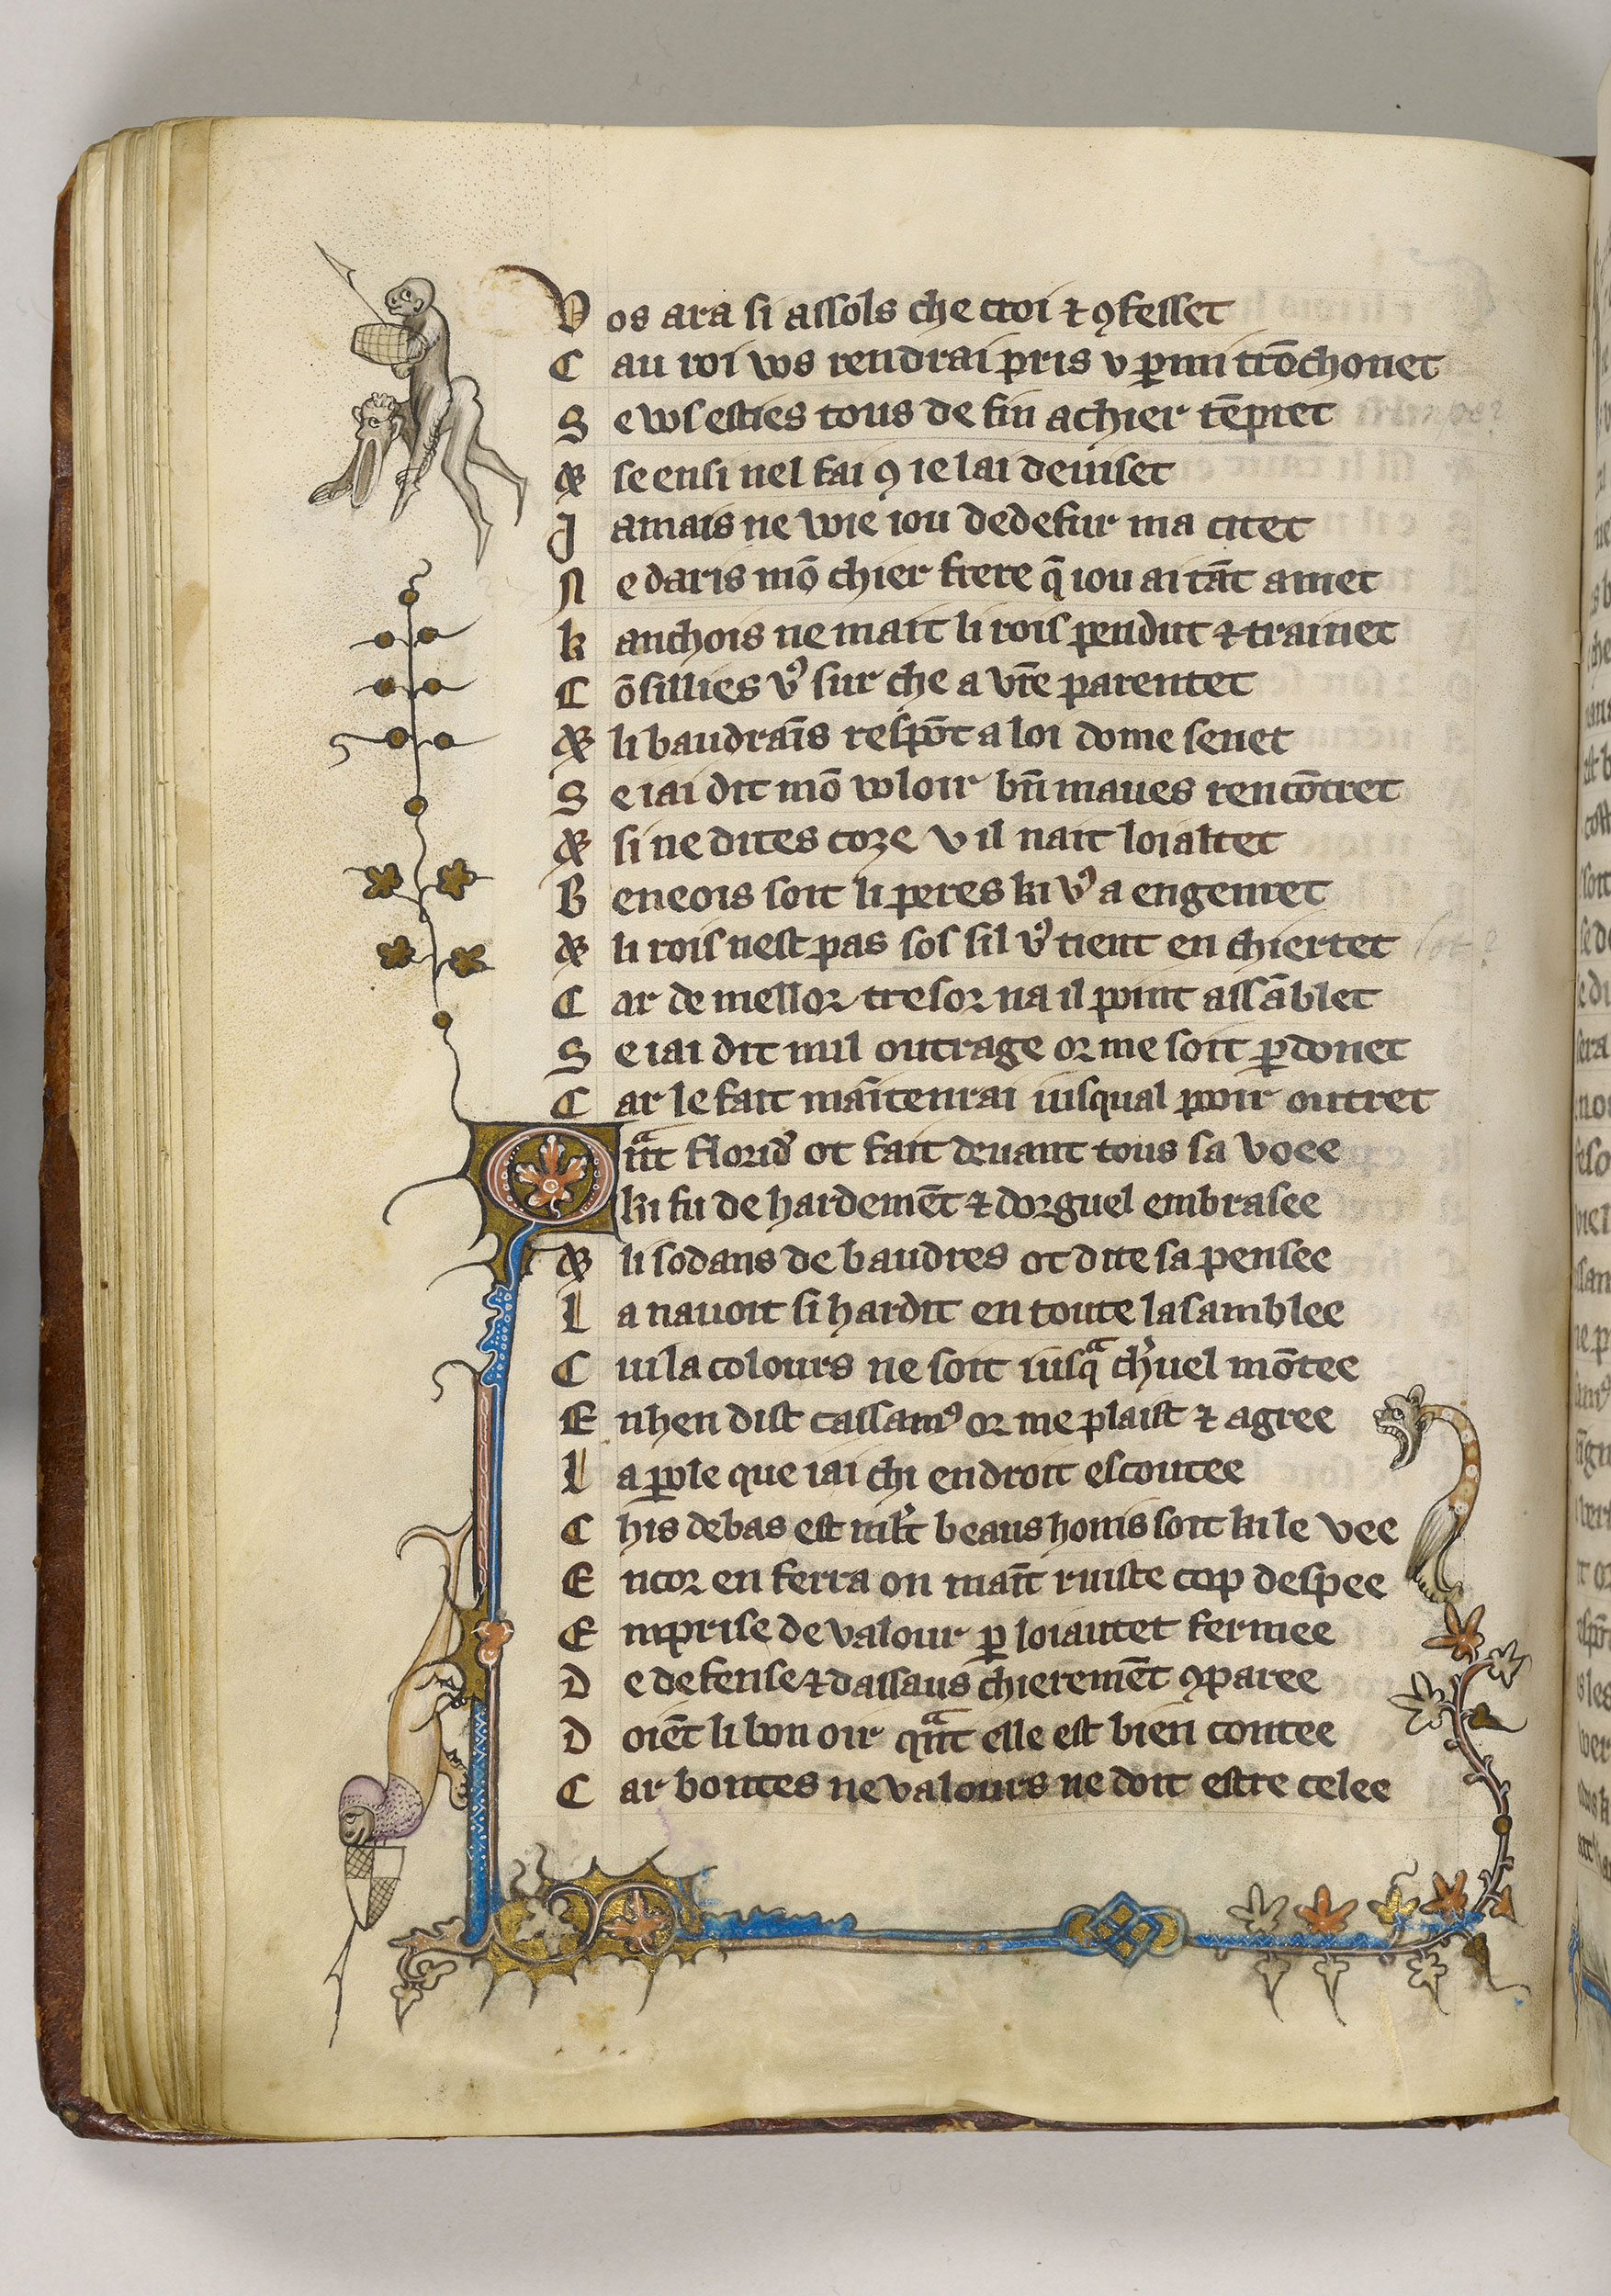 Vos ara si assols che croi ⁊ ꝯfesset
C au roi vvs rendrai pris v ꝑmi trōchonet
S e vvs esties tous de fin achier tēpret
⁊ se ensi nel fai ꝯ ie lai deuiset
J amais ne vvie iou dedefur ma citet
N e daris mō chier frere q̄ iou ai tāt amet
k anchois ne mait li rois pendut ⁊ trainet
C ōsillies vꝰ sur che a vr̄e parentet
⁊ li baudraīs respōt a loi dome senet
S e iai dit mō vvloir bn̄ maues rencōtret
⁊ si ne dites coze v il nait loialtet
B eneois soit li peres ki vꝰ a engenret
⁊ li rois nest pas sos sil vꝰ tient en chiertet
C ar de mellor tresor na il point assāblet
S e iai dit nul outrage or me soit ꝑdonet
C ar le fait maītenrai iusqual pooir outret
Qᵃnt florid' ot fait deuant tous sa voee
ki fu de hardemēt ⁊ dorguel embrasee
⁊ li sodans de baudres ot dite sa pensee
L a nauoit si hardit en toute lasamblee
C ui la colours ne soit iusqᵃ ch'uel mōtee
E nhen dist cassamꝰ or me plaist ⁊ agree
L a ꝑole que iai chi endroit escoutee
C his debas est ml't beaus honis soit ki le vee
E ncor en ferra on maīt ruiste cop despee
E mprise de valour ꝑ loiautet fermee
D e defense ⁊ dassaus chieremēt ꝯparee
D oiēt li bon oir qᵃnt elle est bien contee
C ar bontes ne valours ne doit estre celee